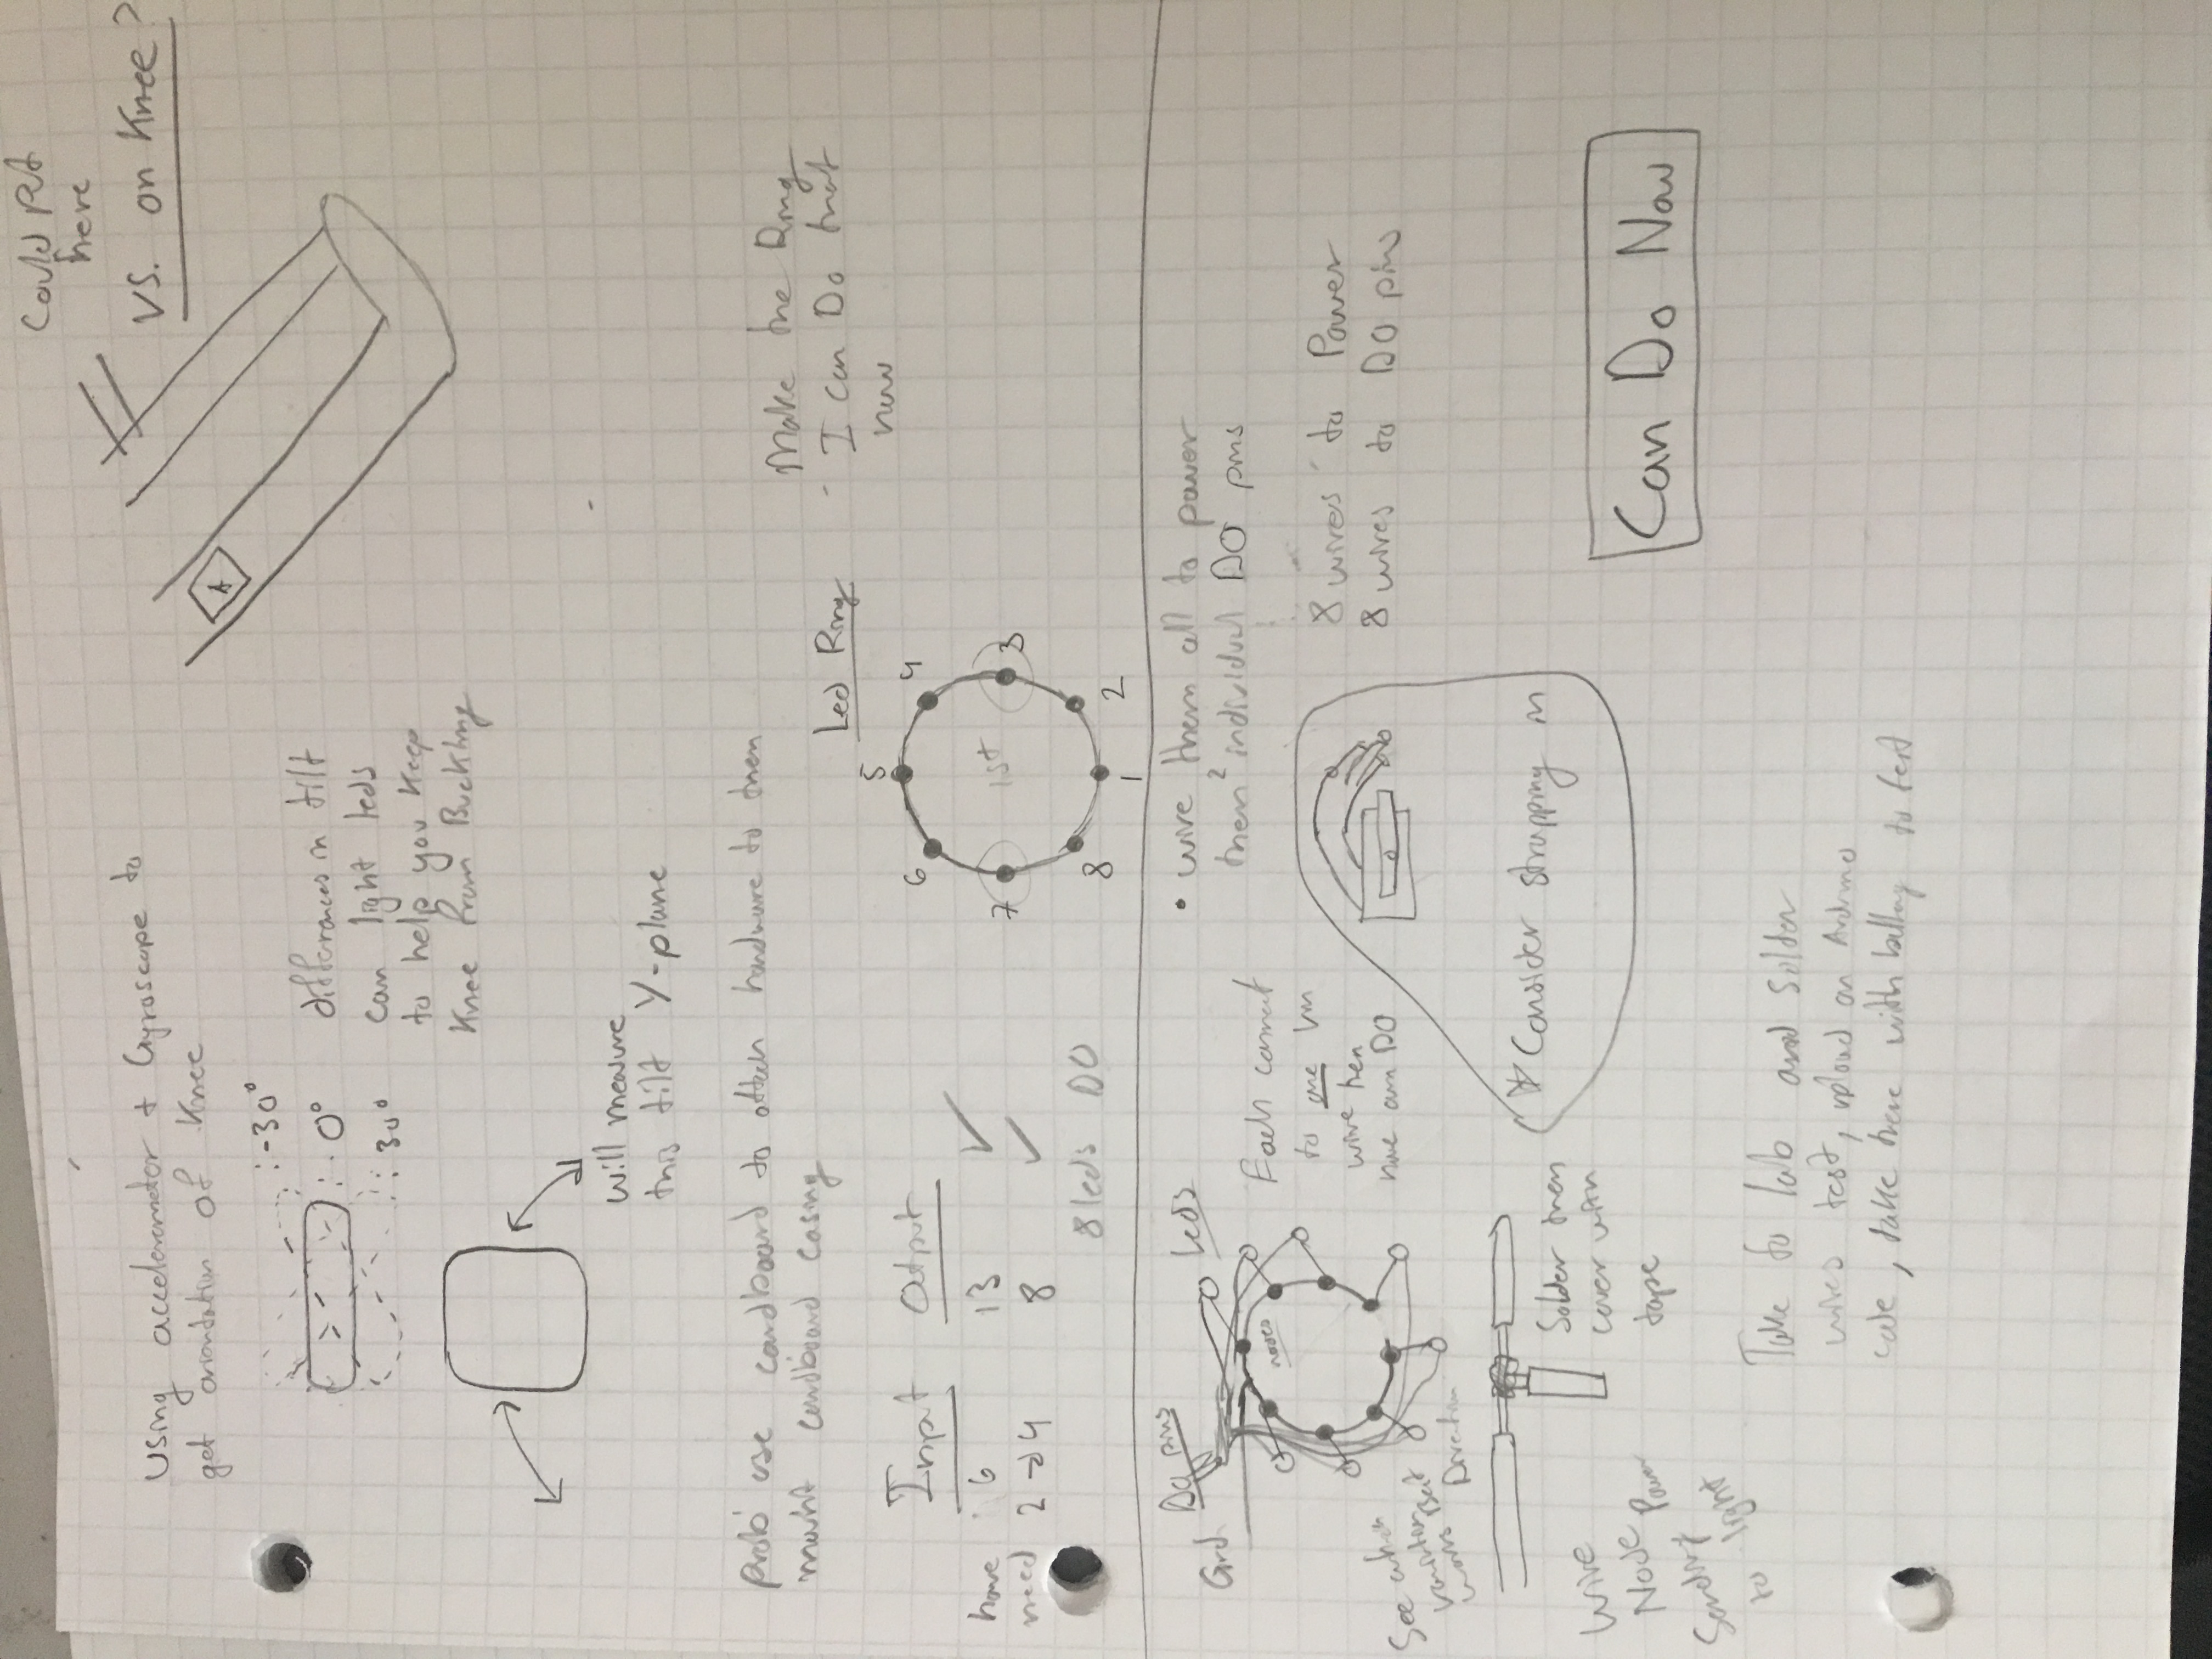 Could Put
here
VS. on Knee?
Using accelerometer + Gyroscope to
get orientation of Knee
-30°
0°
30°
differences in tilt
can light leds
to help you Keep
Knee from Buckling
will measure
this tilt Y-plane
Prob use cardboard to attach hardware to then
mount cardboard casing
Make the Ring
I can Do that
now
Led Ring
5
6
4
7
1st
3
8
2
1
Input Output
have 6 13 ✓
need 2 → 4 8 ✓
8 leds DO
DO pins
Grd
Leds
nodes
Each connect
to one
wire then
own DO
See which
variation
works Best
Direction
• wire them all to power
then 2 individual DO pins
8 wires to Power
8 wires to DO pins
Consider strapping in
Solder then
cover with
tape
Wire
Node
Sending Power
to light
Can Do Now
Take to lab and Solder
wires test, upload an Arduino
code, take there with battery to test